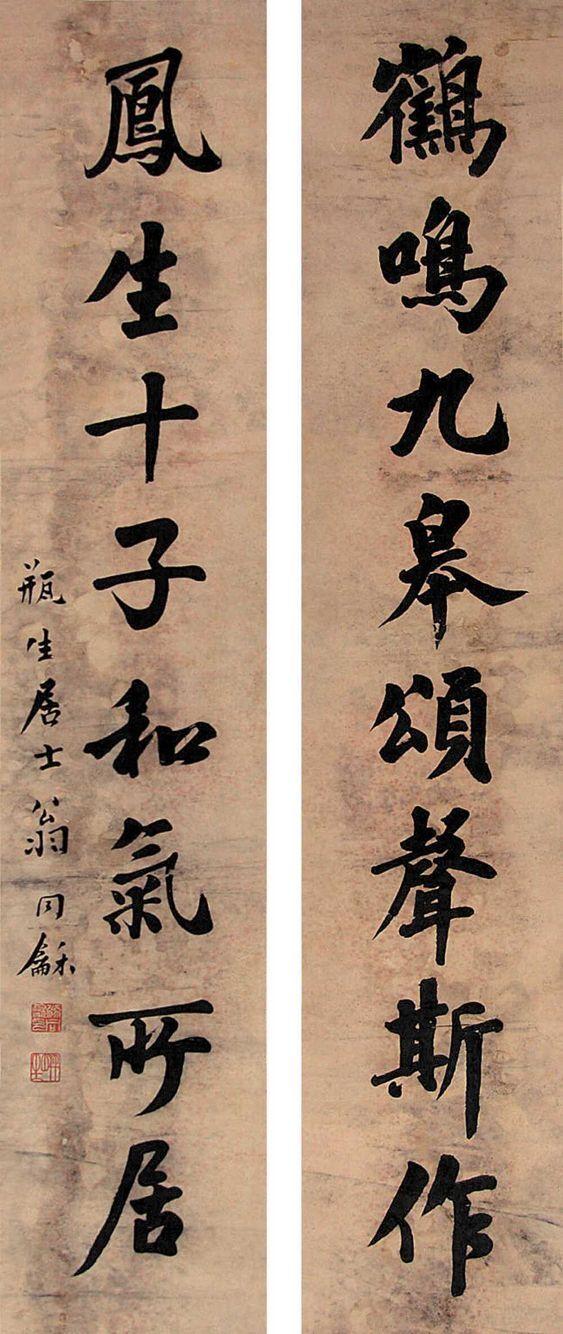 鶴鳴九皋頌聲斯作
鳳生十子和氣所居
瓶生居士翁同龢